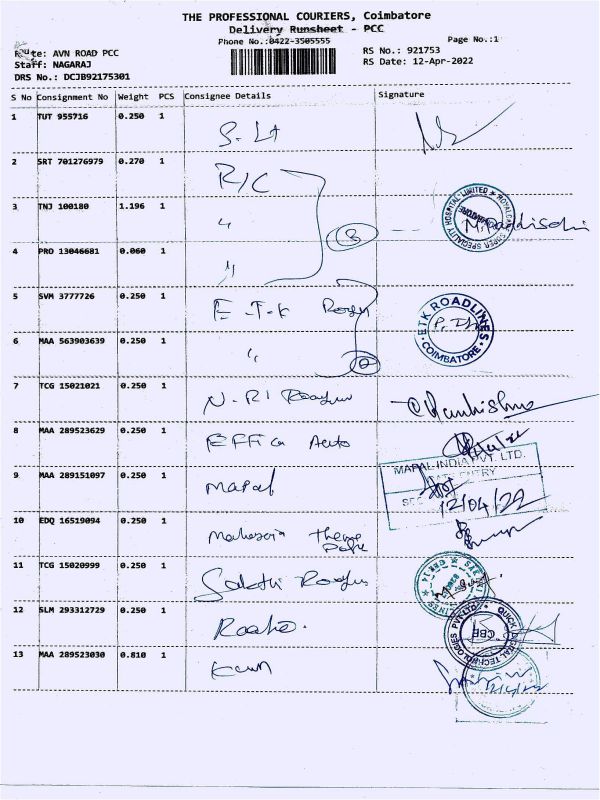 THE PROFESSIONAL COURIERS, Coimbatore
Delivery Runsheet - PCC
Phone No.:0422-3505555
Page No.:1
Route: AVN ROAD PCC
RS No.: 921753
Staff: NAGARAJ
RS Date: 12-Apr-2022
DRS No.: DCJB92175301
S No Consignment No Weight PCS Consignee Details Signature
1 TUT 955716 0.250 1
2 SRT 701276979 0.270 1 R/C
3 TNJ 100180 1.196 1 "
4 PRO 13046681 0.060 1 "
5 SVM 3777726 0.250 1 E.T.K
6 MAA 563903639 0.250 1 "
ETK ROADLINES COIMBATORE
7 TCG 15021021 0.250 1
8 MAA 289523629 0.250 1 Effica Auto
MAPAL INDIA PVT. LTD.
9 MAA 289151097 0.250 1 Mapal
12/04/22
10 EDQ 16519094 0.250 1
11 TCG 15020999 0.250 1 Sakthi
12 SLM 293312729 0.250 1
CBE
13 MAA 289523030 0.810 1